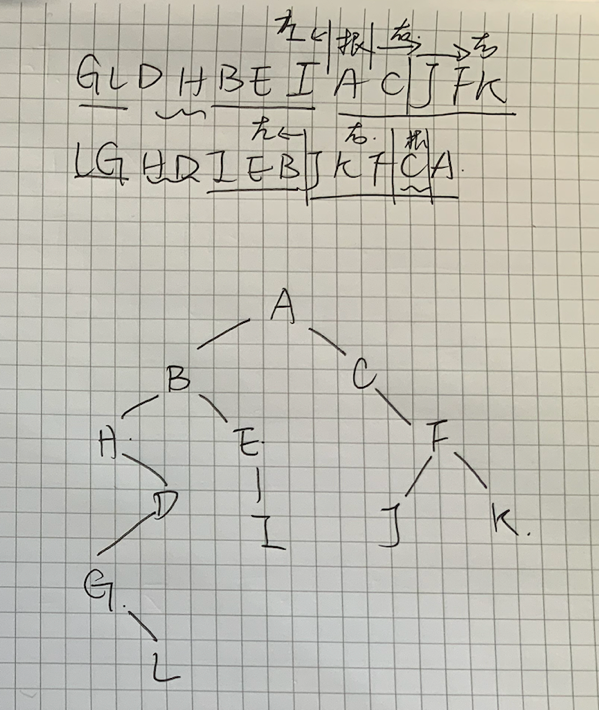 左 根 右 右
GLDHBEIACJFK
左 右 根
LGHDIEBJKFCA.
A
B C
H. E. F
D I J K.
G.
L